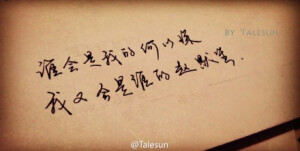 BY TALESUN
谁会是我的何以琛
我又会是谁的赵默笙.
@Talesun